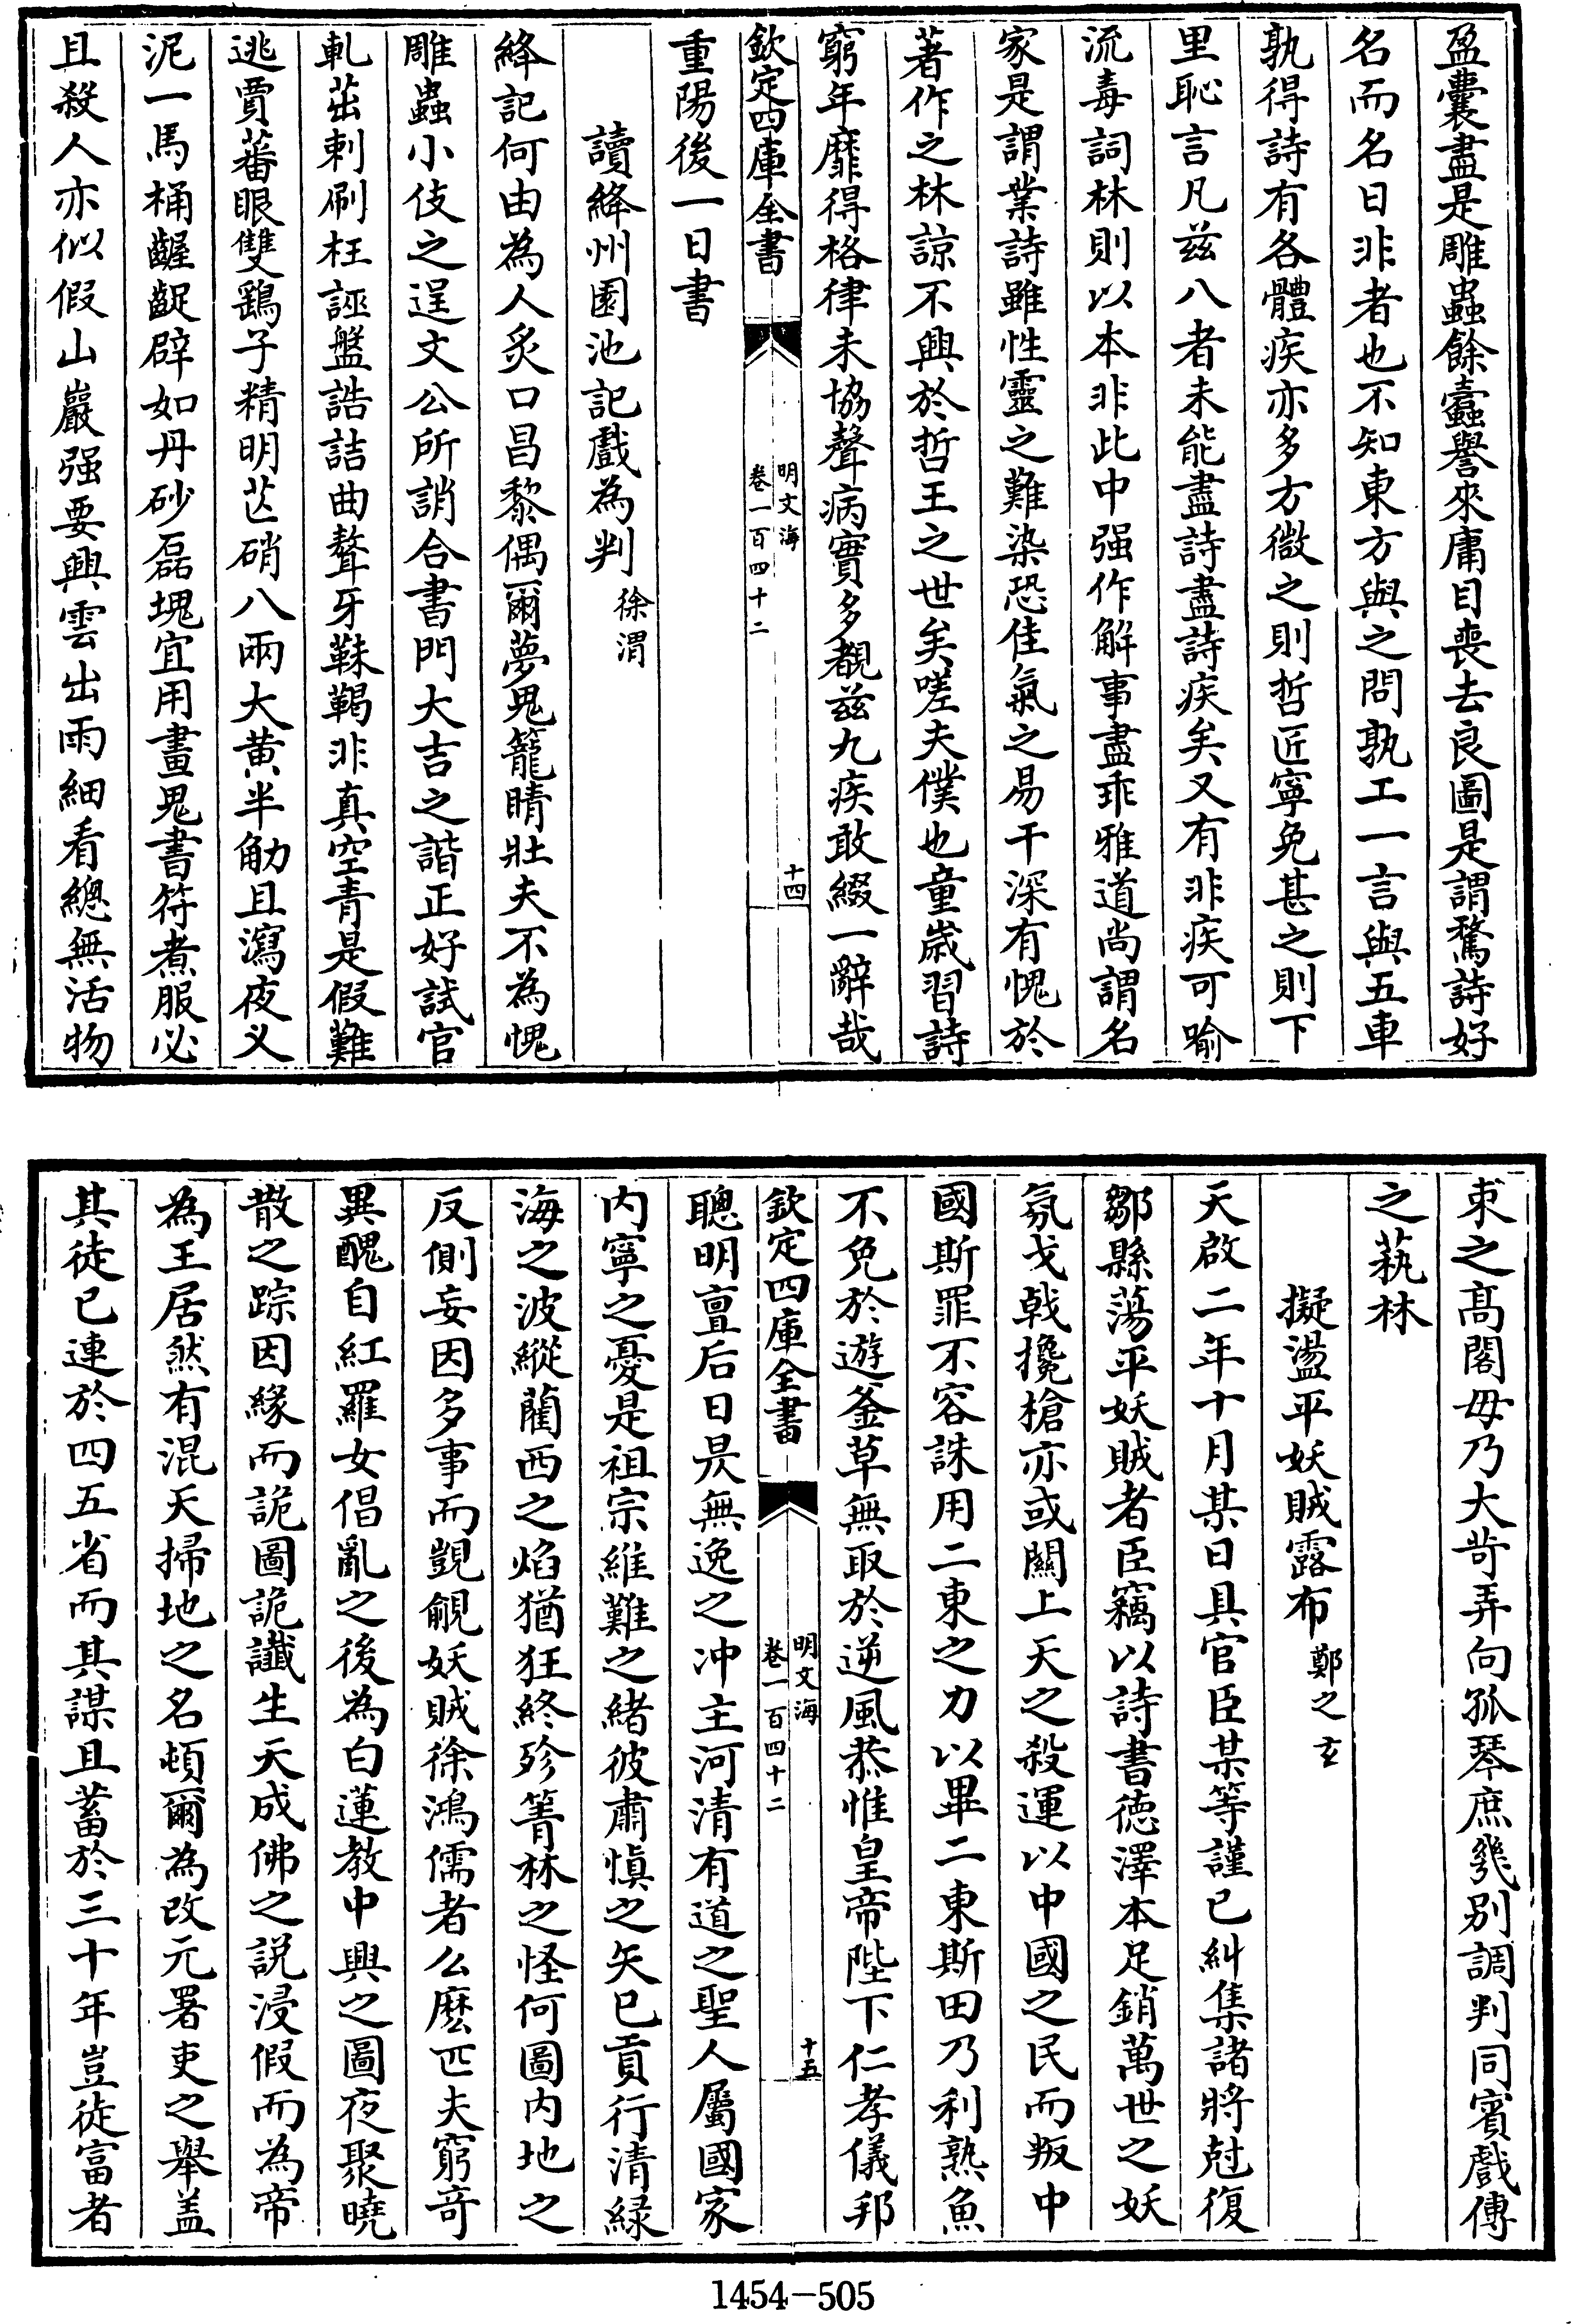 盈囊盡是雕蟲餘蠧譽來庸目喪去良圖是謂騖詩好
名而名日非者也不知東方與之問孰工一言與五車
孰得詩有各體疾亦多方微之則哲匠寧免甚之則下
里恥言凡兹八者未能盡詩盡詩疾矣又有非疾可喻
流毒詞林則以本非此中强作解事盡乖雅道尚謂名
家是謂業詩雖性靈之難染恐佳氣之易干深有愧於
著作之林諒不興於哲王之世矣嗟夫僕也童嵗習詩
窮年靡得格律未協聲病實多覩兹九疾敢綴一辭哉
欽定四庫全書
明文海
卷一百四十二
十四
重陽後一日書
讀絳州園池記戲為判
徐渭
絳記何由為人炙口昌黎偶爾夢鬼籠睛壯夫不為愧
雕蟲小伎之逞文公所誚合書門大吉之諧正好試官
軋茁剌刷枉誣盤誥詰曲聱牙靺鞨非真空青是假難
逃賈蕃眼雙鷄子精明芒硝八兩大黄半觔且瀉夜乂
泥一馬桶齷齪辟如丹砂磊塊宜用畫鬼書符煮服必
且殺人亦似假山巖强要興雲出雨細看總無活物
束之髙閣毋乃大苛弄向孤琴庶幾别調判同賓戲傳
之蓺林
擬盪平妖賊露布
鄭之玄
天啟二年十月某日具官臣某等謹已糾集諸將尅復
鄒縣蕩平妖賊者臣竊以詩書徳澤本足銷萬世之妖
氛戈戟攙槍亦或關上天之殺運以中國之民而叛中
國斯罪不容誅用二東之力以畢二東斯田乃利熟魚
不免於遊釜草無取於逆風恭惟皇帝陛下仁孝儀邦
欽定四庫全書
明文海
卷一百四十二
十五
聰明亶后日昃無逸之冲主河清有道之聖人屬國家
内寧之憂是祖宗維難之緒彼肅慎之矢已貢行清緑
海之波縱藺西之焰猶狂終殄箐林之怪何圖内地之
反側妄因多事而覬覦妖賊徐鴻儒者么麽匹夫窮奇
異醜自紅羅女倡亂之後為白蓮教中興之圖夜聚曉
散之踪因緣而詭圖詭讖生天成佛之説浸假而為帝
為王居然有混天掃地之名頓爾為改元署吏之舉盖
其徒已連於四五省而其謀且蓄於三十年豈徒富者
1454-505